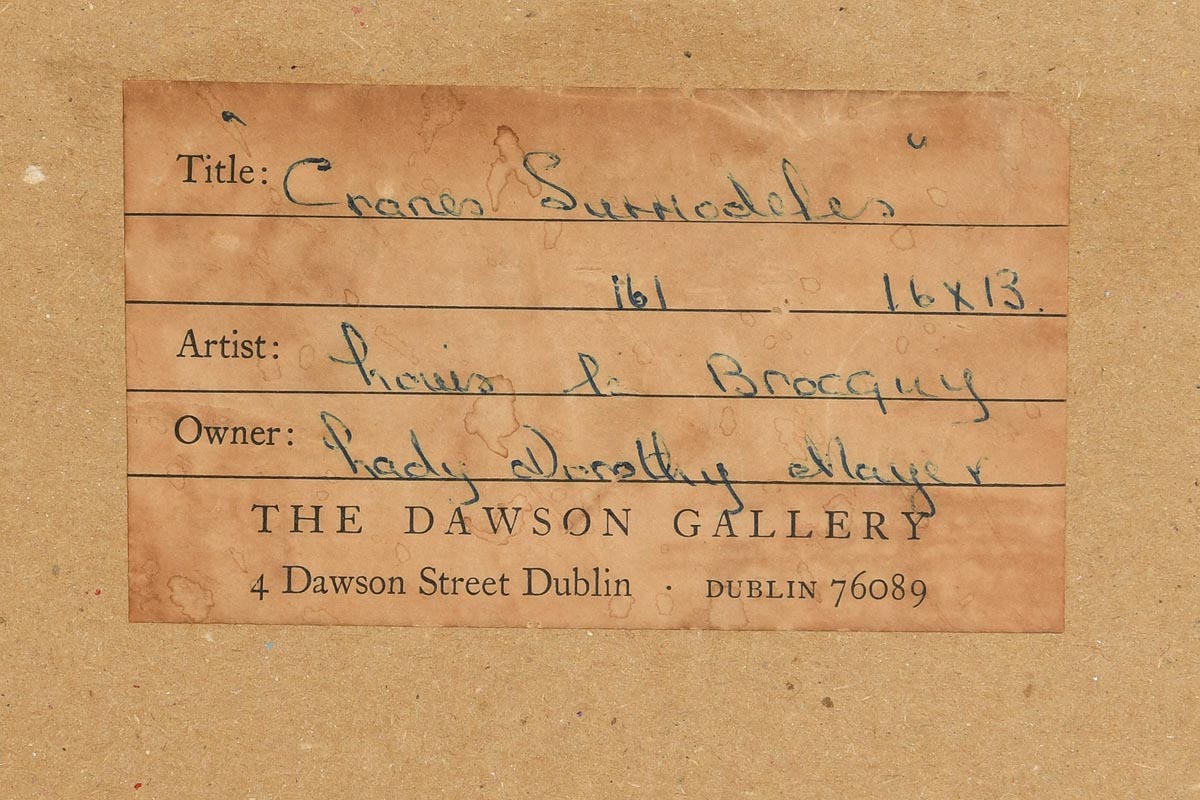 Title: "Cranes Surmodelés"
161 16 x 13.
Artist: Louis le Brocquy
Owner: Lady Dorothy Mayer
THE DAWSON GALLERY
4 Dawson Street Dublin · DUBLIN 76089